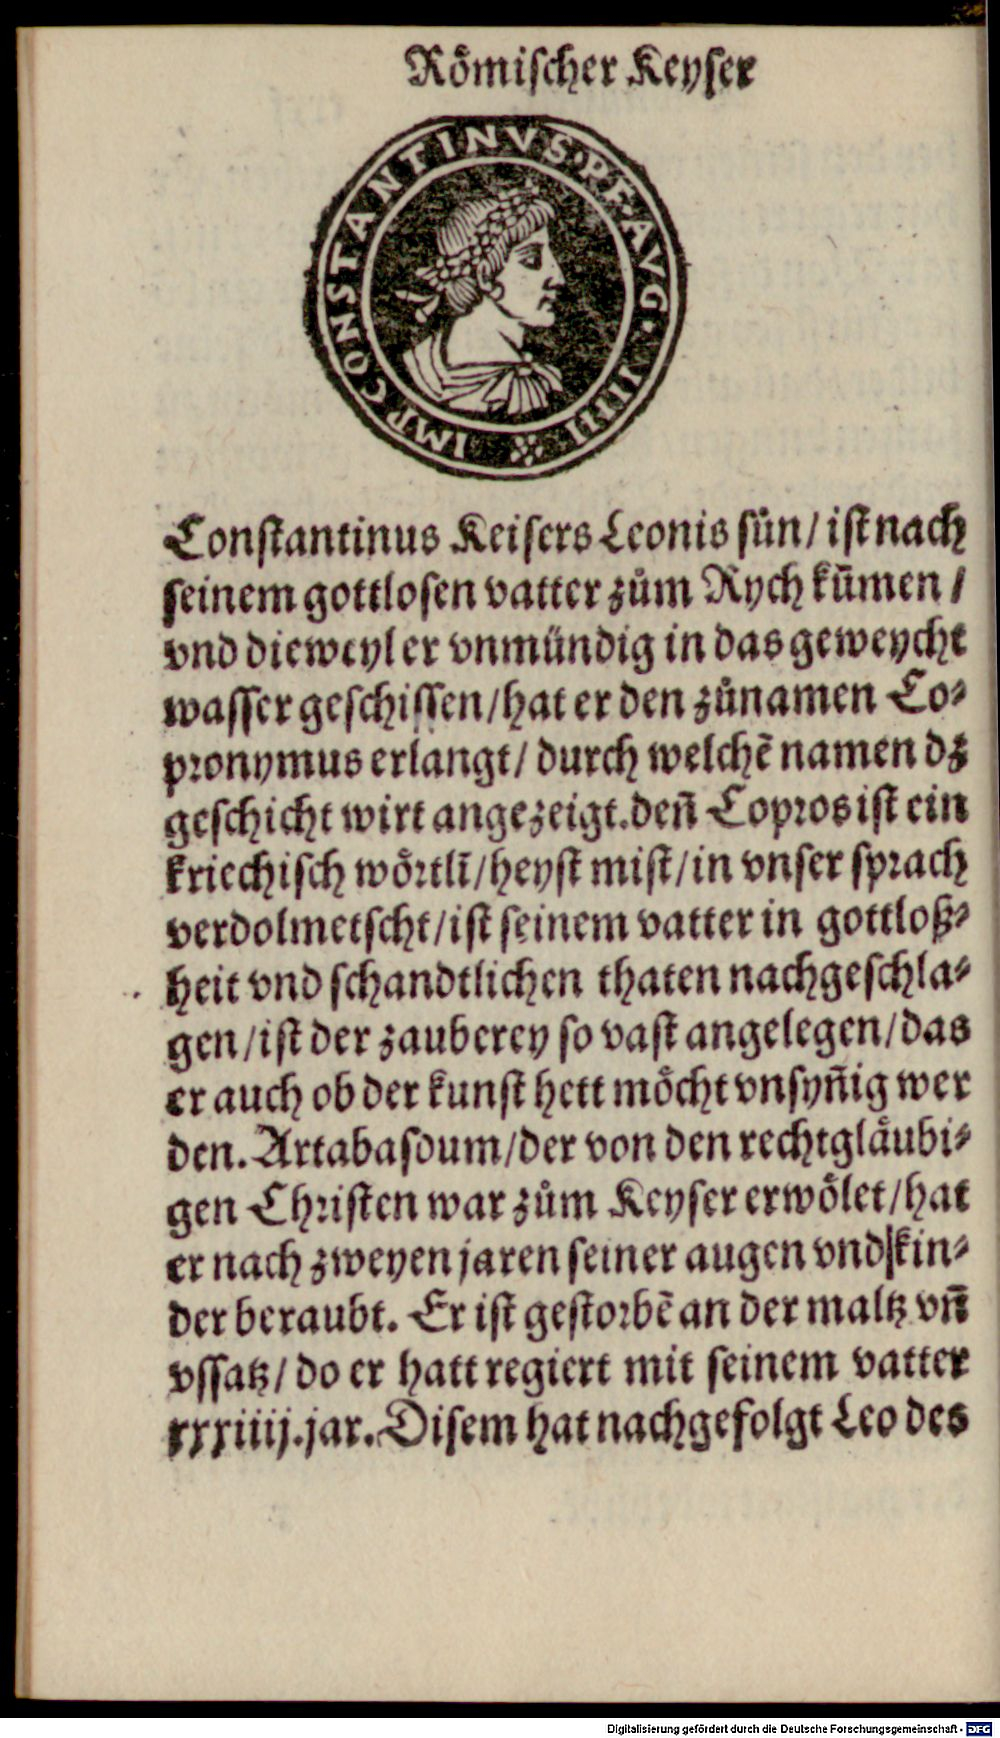 Roͤmiſcher Keyſer
IMP CONSTANTINVS·P·F·AVG·IIIII
Conſtantinus Keiſers Leonis ſün/ iſt nach
ſeinem gottloſen vatter zům Rych kům̄en /
vnd dieweyl er vnmündig in das geweycht
waſſer geſchiſſen/hat er den zůnamen Co⸗
pronymus erlangt/ durch welchē namen dz
geſchicht wirt angezeigt.deñ Copros iſt ein
kriechiſch woͤrtlī/heyſt miſt/in vnſer ſprach
verdolmetſcht/iſt ſeinem vatter in gottloß⸗
heit vnd ſchandtlichen thaten nachgeſchla⸗
gen/iſt der zauberey ſo vaſt angelegen/das
er auch ob der kunſt hett moͤcht vnſyñig wer
den.Artabaſdum/der von den rechtglaͤubi⸗
gen Chriſten war zům Keyſer erwoͤlet/hat
er nach zweyen jaren ſeiner augen vnd kin⸗
der beraubt. Er iſt geſtorbē an der maltz vñ
vſſatz/ do er hatt regiert mit ſeinem vatter
xxxiiij.jar.Diſem hat nachgefolgt Leo des
Digitalisierung gefördert durch die Deutsche Forschungsgemeinschaft - DFG